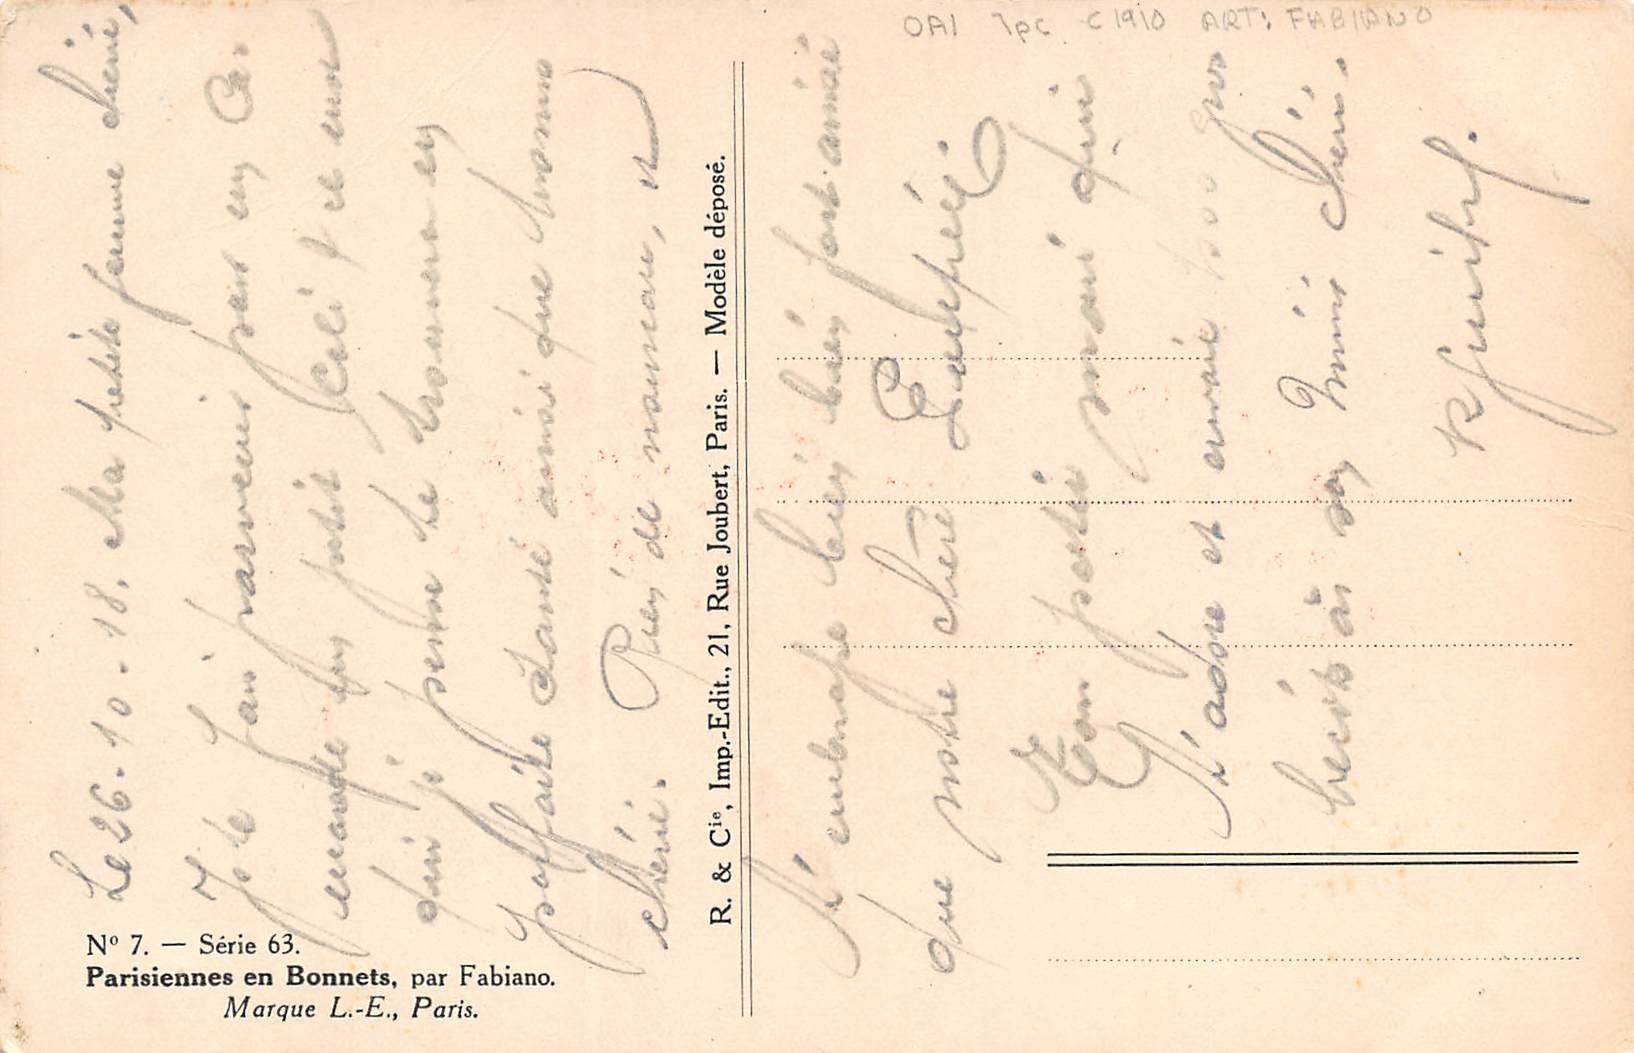 OAI 1pc C1910 ART: FABIANO
Le 26-10-18. Ma petite femme chérie,
Je te fais parvenir par en
marade un petit Colis je
qui j' pense te trouvera en
parfaite santé ainsi que
chérie. Rien de nouveau,
R. & Cie, Imp.-Edit., 21, Rue Joubert, Paris. — Modèle déposé.
t'embrasse bien bien bien fort ainsi
que notre chère
Ton petit mari qui
t'adore et envoie 1000 gros
à son Mimi chéri.
Nº 7. — Série 63.
Parisiennes en Bonnets, par Fabiano.
Marque L.-E., Paris.